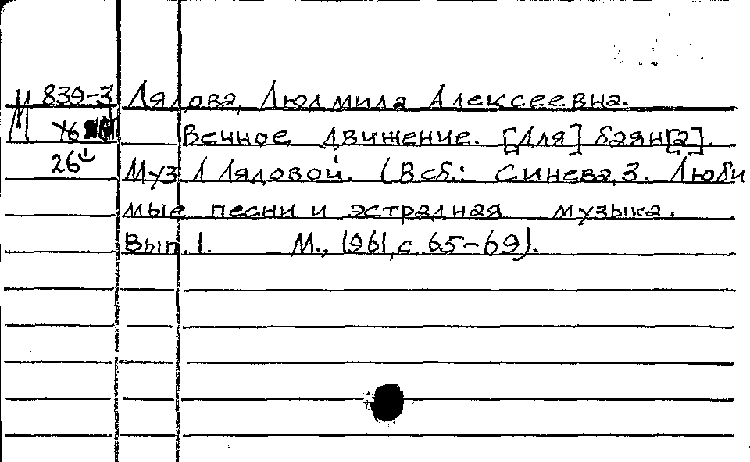 М 839-3 Лядова, Людмила Алексеевна.
Вечное движение. [Для] баян[а].
26 Муз Л Лядовой. (В сб.: Синева, З. Люби
мые песни и эстрадная музыка.
Вып. 1. М., 1961, с. 65-69).